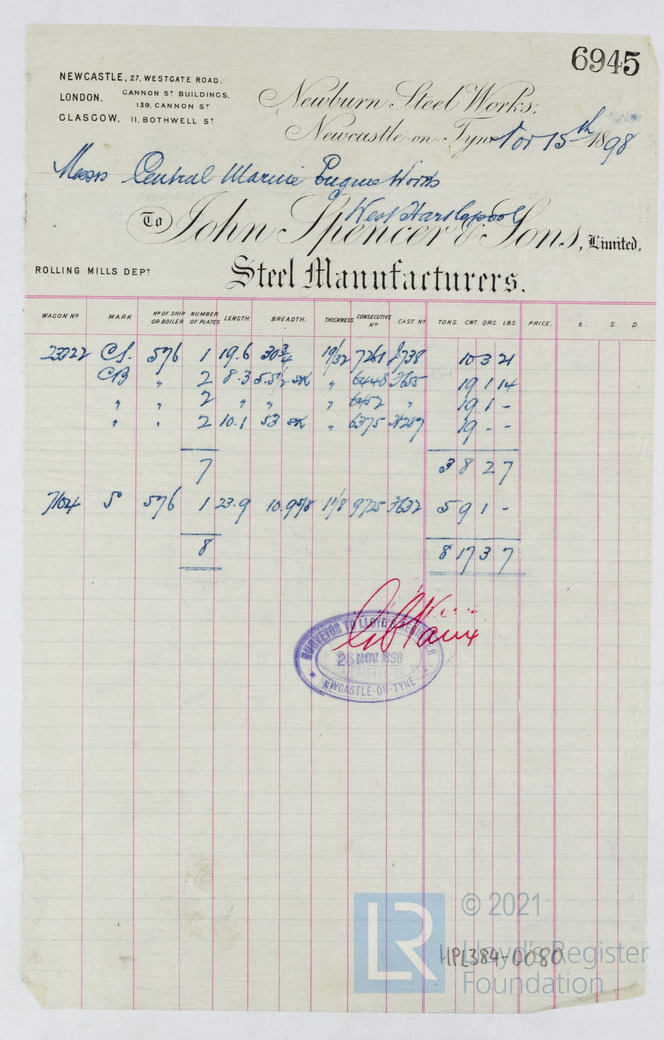 6945
NEWCASTLE, 27, WESTGATE ROAD.
LONDON, CANNON ST BUILDINGS, 139, CANNON ST
GLASGOW, 11, BOTHWELL ST
Newburn Steel Works,
Newcastle-on-Tyne Nov 15th 1898
Messrs Central Marine Engine Works
West Hartlepool
To John Spencer & Sons, Limited,
ROLLING MILLS DEPT
Steel Manufacturers.
WAGON No MARK No OF SHIP OR BOILER NUMBER OF PLATES LENGTH. BREADTH. THICKNESS. CONSECUTIVE No CAST No TONS. CWT. QRS. LBS. PRICE. £. S. D.
CS. 576 1 19.6 30 3/4 19/32 7268 10 3 21
CB " 2 8.3 " 6446 3655 19 1 14
" " 2 " " " 6452 " 19 1 -
" " 2 10.1 53 " 6375 19 - -
7 3 8 2 7
71024 S 576 1 23.9 9725 3632 5 9 1 -
8 8 17 3 7
SURVEYOR TO LLOYD'S REGISTER
25 NOV 1898
NEWCASTLE-ON-TYNE
LR
© 2021
Lloyd's Register
Foundation
HPL384-0080